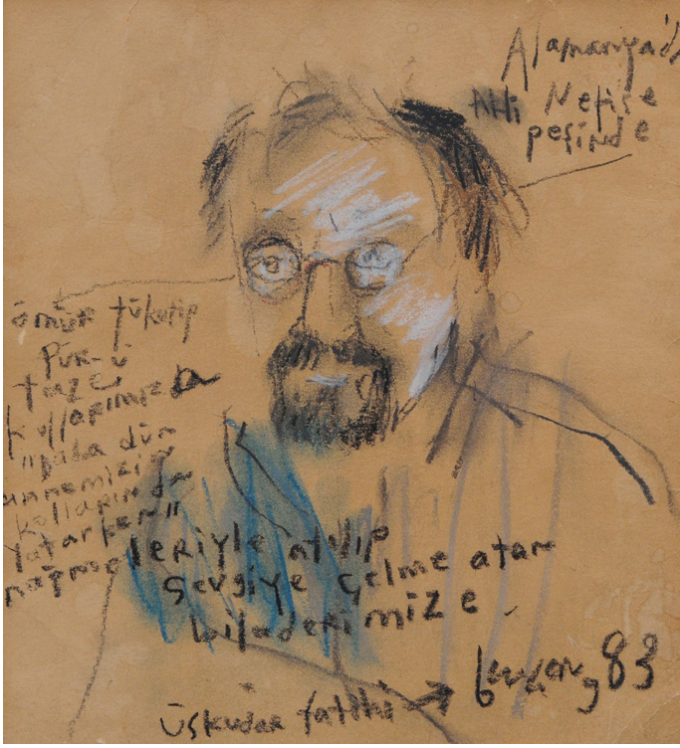 Alamanya'da
Nefise
peşinde
ömür tüketip
Pür-ü
taze
kollarımızda
dün
annemizin
kollarında
yatarken"
nağmeleriyle atılıp
sevgiye çelme atan
biladerimize
Üsküdar fatihi → 83